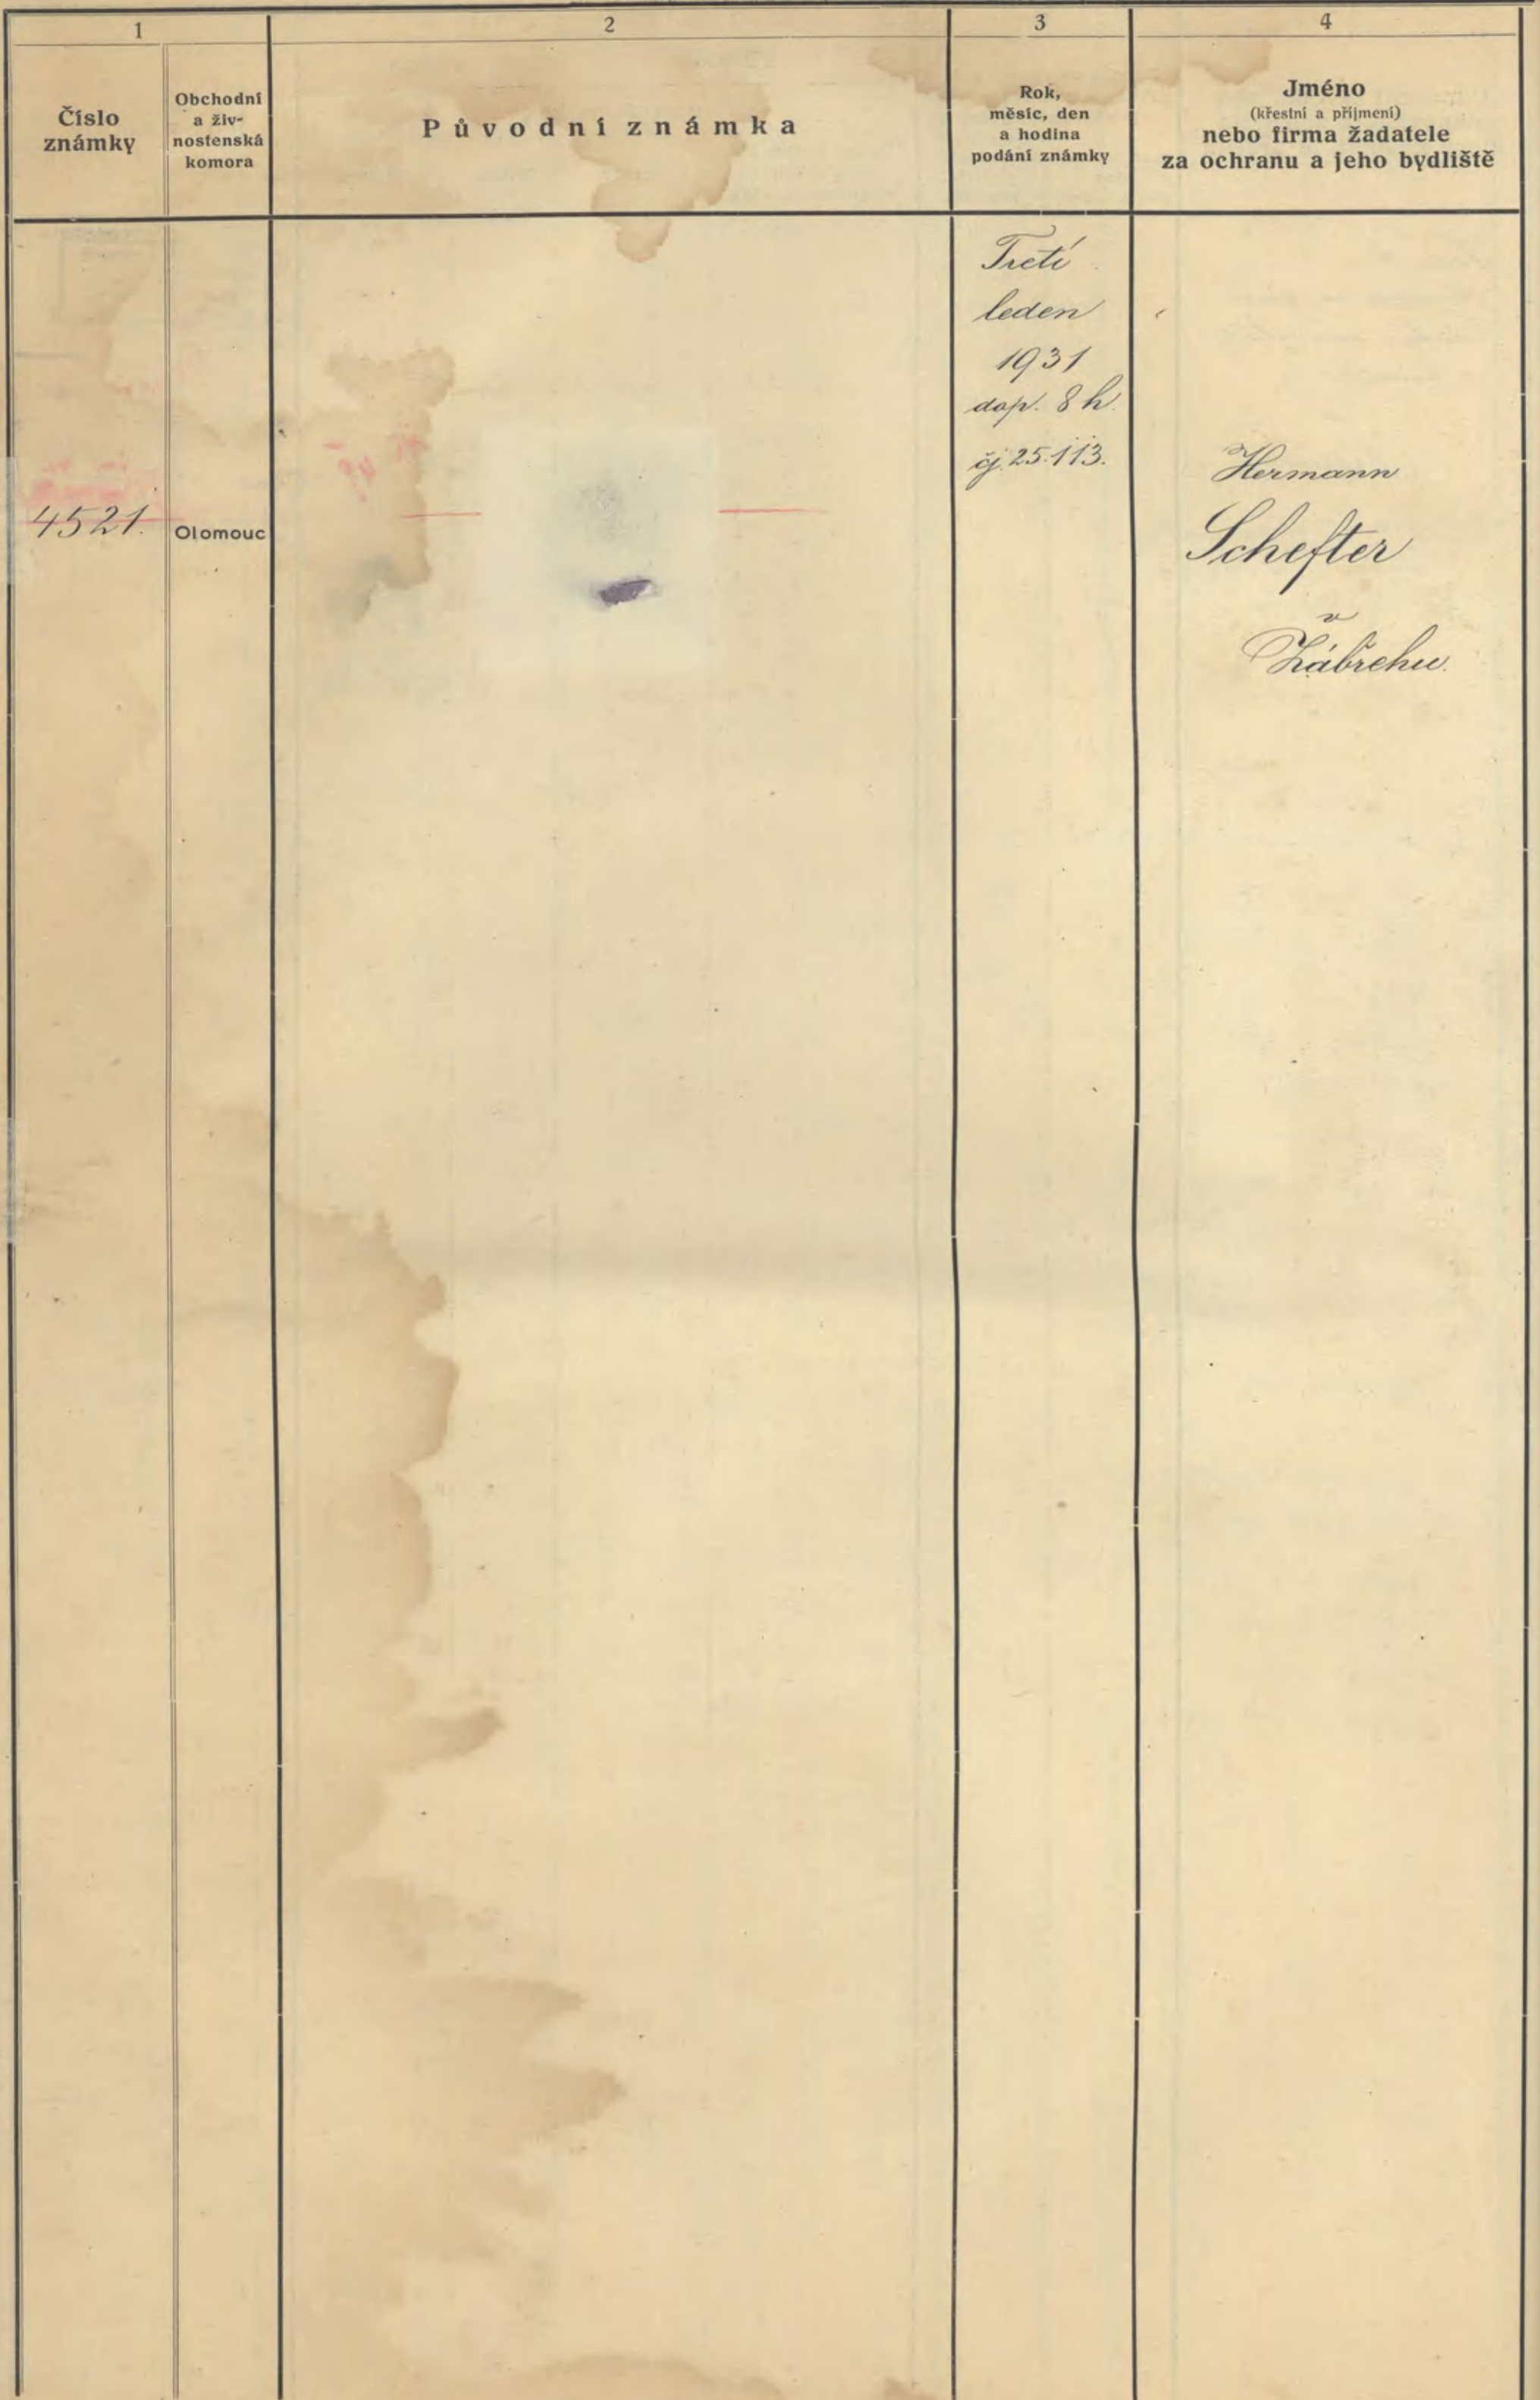 1
2
3
4
Číslo
známky
Obchodní
a živ-
nostenská
komora
Původní známka
Rok,
měsíc, den
a hodina
podání známky
Jméno
(křestní a příjmení)
nebo firma žadatele
za ochranu a jeho bydliště
Třetí
leden
1931
dop. 8 h.
čj. 25.113.
4521.
Olomouc
Hermann
Schefter
v
Zábřehu.